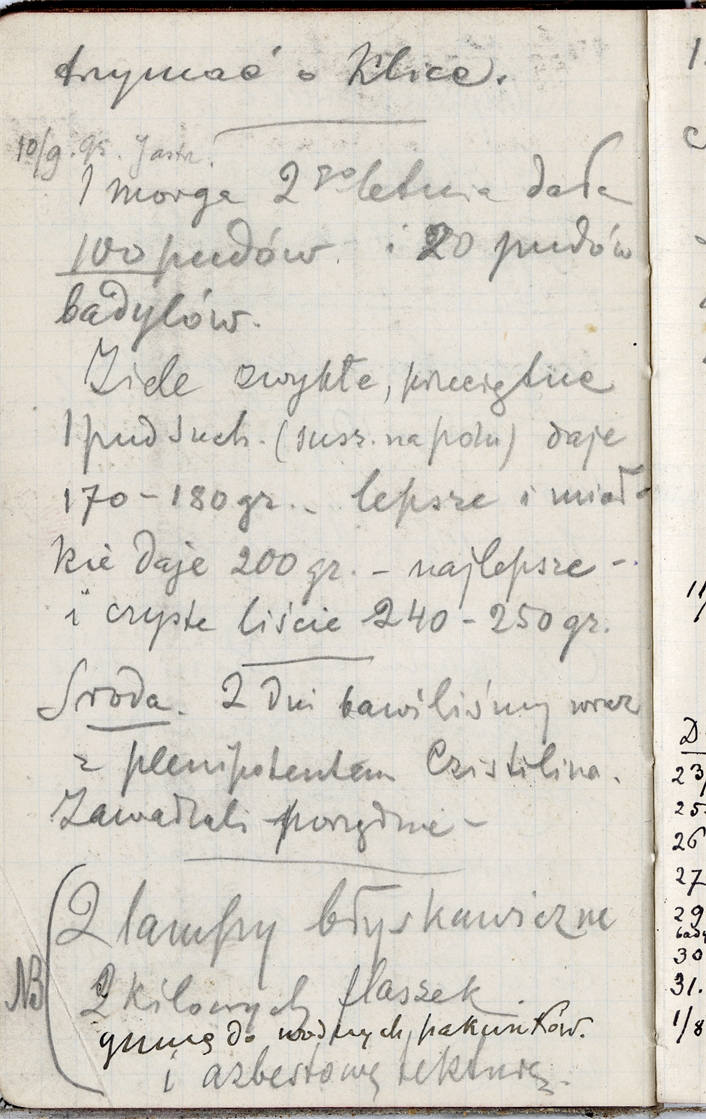 trzymać o Klice.
10/9. 95. Jastr.
1 morga 2 goletnia dała
100 pudów. i 20 pudów
badylów.
Ziele zwykłe, przeciętne
1 pud such. (susz. na polu) daje
170-180 gr. - lepsze i miał-
kie daje 200 gr. - najlepsze -
i czyste liście 240-250 gr.
Środa. 2 dni bawiliśmy wraz
z plenipotentem Czistilina.
Zawadzali porządnie -
NB
2 lampy błyskawiczne
2 kilowych flaszek
gumę do wodnych pakunków.
i azbestową tekturę.
1.
11/
D
23/
25
26
27
29
bady
30
31.
1/8